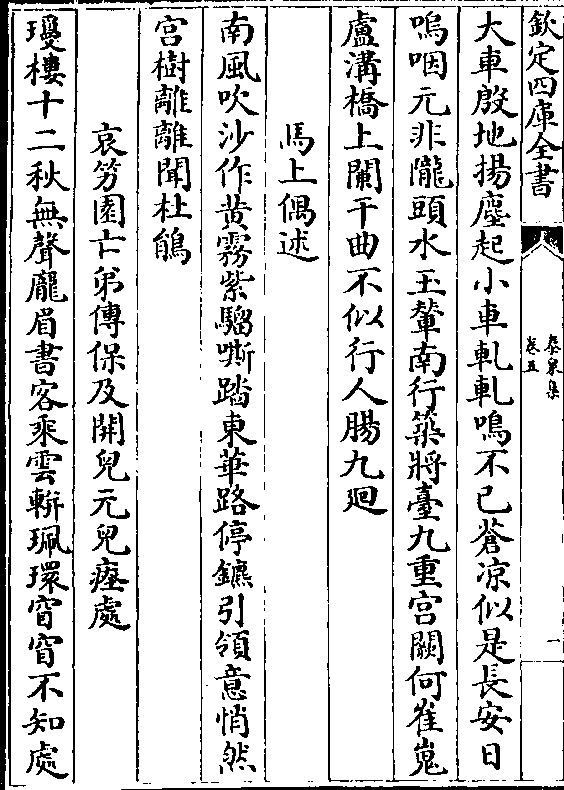 欽定四庫全書
泰泉集
卷五
一
大車殷地揚塵起小車軋軋鳴不已蒼凉似是長安日
嗚咽元非隴頭水玉輦南行築將臺九重宮闕何崔嵬
盧溝橋上闌干曲不似行人腸九廻
馬上偶述
南風吹沙作黄霧紫騮嘶踏東華路停鑣引領意悄然
宫樹離離聞杜鵑
哀竻園亡弟傳保及開兒元兒瘞處
瓊樓十二秋無聲龎眉書客乘雲輧珮環窅窅不知處